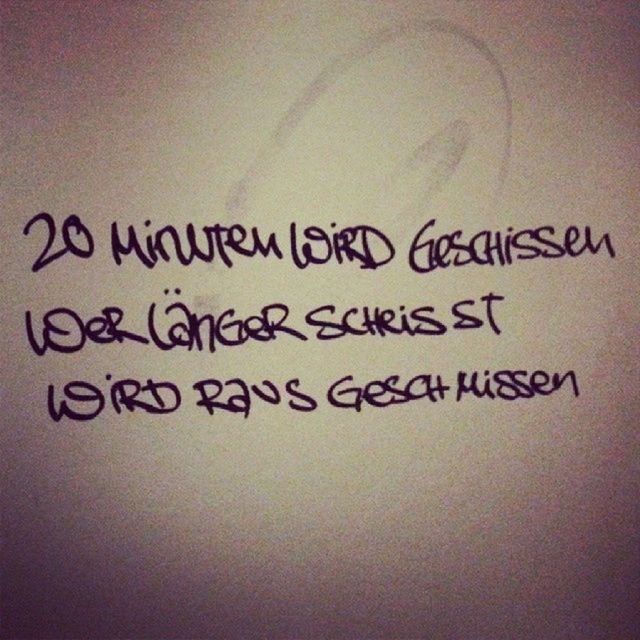 20 Minuten wird geschissen
wer länger scheisst
wird raus geschmissen